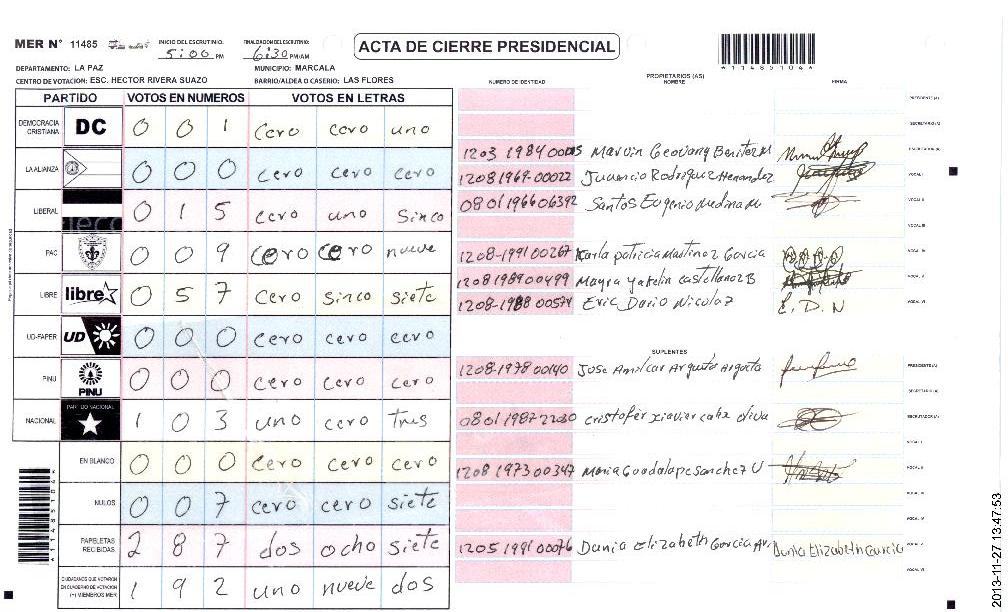 MER N° 11485
INICIO DEL ESCRUTINIO:
5:00 PM
FINALIZACION DEL ESCRUTINIO:
6:30 PM/AM
ACTA DE CIERRE PRESIDENCIAL
114851044
DEPARTAMENTO: LA PAZ
MUNICIPIO: MARCALA
CENTRO DE VOTACION: ESC. HECTOR RIVERA SUAZO
BARRIO/ALDEA O CASERIO: LAS FLORES
PARTIDO VOTOS EN NUMEROS VOTOS EN LETRAS
DEMOCRACIA CRISTIANA DC 0 0 1 cero cero uno
LA ALIANZA 0 0 0 cero cero cero
LIBERAL 0 1 5 cero uno Sinco
PAC 0 0 9 cero cero nueve
LIBRE libre 0 5 7 cero Sinco siete
UD-FAPER UD 0 0 0 cero cero cero
PINU PINU 0 0 0 cero cero cero
NACIONAL PARTIDO NACIONAL 1 0 3 uno cero tres
EN BLANCO 0 0 0 cero cero cero
NULOS 0 0 7 cero cero siete
PAPELETAS RECIBIDAS 2 8 7 dos ocho siete
CIUDADANOS QUE VOTARON EN CUADERNO DE VOTACION (+) MIEMBROS MER 1 9 2 uno nueve dos
NUMERO DE IDENTIDAD
PROPIETARIOS (AS)
NOMBRE
FIRMA
PRESIDENTE (A)
SECRETARIO (A)
1203 1984 Marvin Geovany Benitez M ESCRUTADOR (A)
1208 1969-00022 Juancio Rodriguez Hernandez VOCAL I
0801 1966 06392 Santos Eugenio Medina M VOCAL II
VOCAL III
1208-1991 00267 Karla patricia Martinez Garcia VOCAL IV
1208 1989 00499 Mayra yakelin castellanoz B VOCAL V
1208-1988 00574 Eric Dario Nicolaz E. D. N VOCAL VI
SUPLENTES
1208-1978 00140 Jose Amilcar Argueta Argueta PRESIDENTE (A)
SECRETARIO (A)
0801 1987 2230 cristofer xiavier ESCRUTADOR (A)
VOCAL I
1208 1973 00347 Maria Guadalape Sanchez U VOCAL II
VOCAL III
VOCAL IV
1205 1991 00076 Dania Elizabeth Garcia Av. Dania Elizabeth Garcia VOCAL V
VOCAL VI
2013-11-27 13:47:53